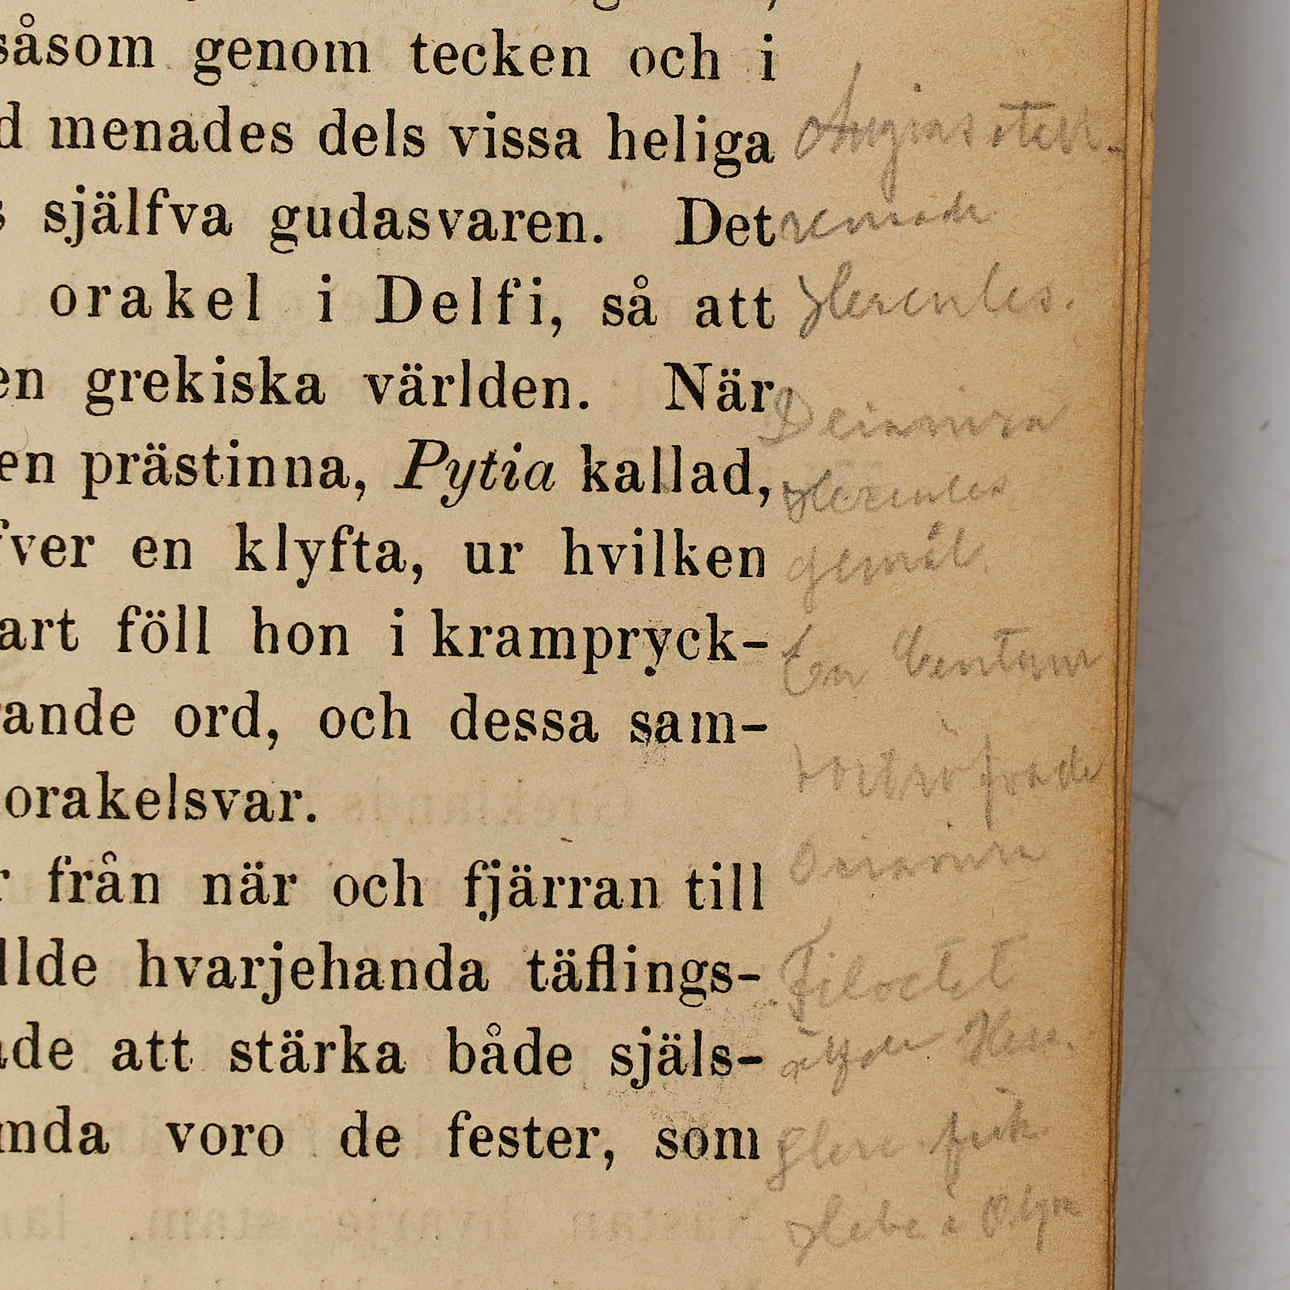 såsom genom tecken och i
d menades dels vissa heliga
s själfva gudasvaren. Det
orakel i Delfi, så att
en grekiska världen. När
en prästinna, Pytia kallad,
fver en klyfta, ur hvilken
art föll hon i krampryck-
rande ord, och dessa sam-
orakelsvar.
r från när och fjärran till
llde hvarjehanda täflings-
ade att stärka både själs-
nda voro de fester, som
Augias stall-
rensade
Hercules.
Deianira
Hercules
gemål.
En Centaur
Deianira
Filoctet
Here fick
Hebe i Olym